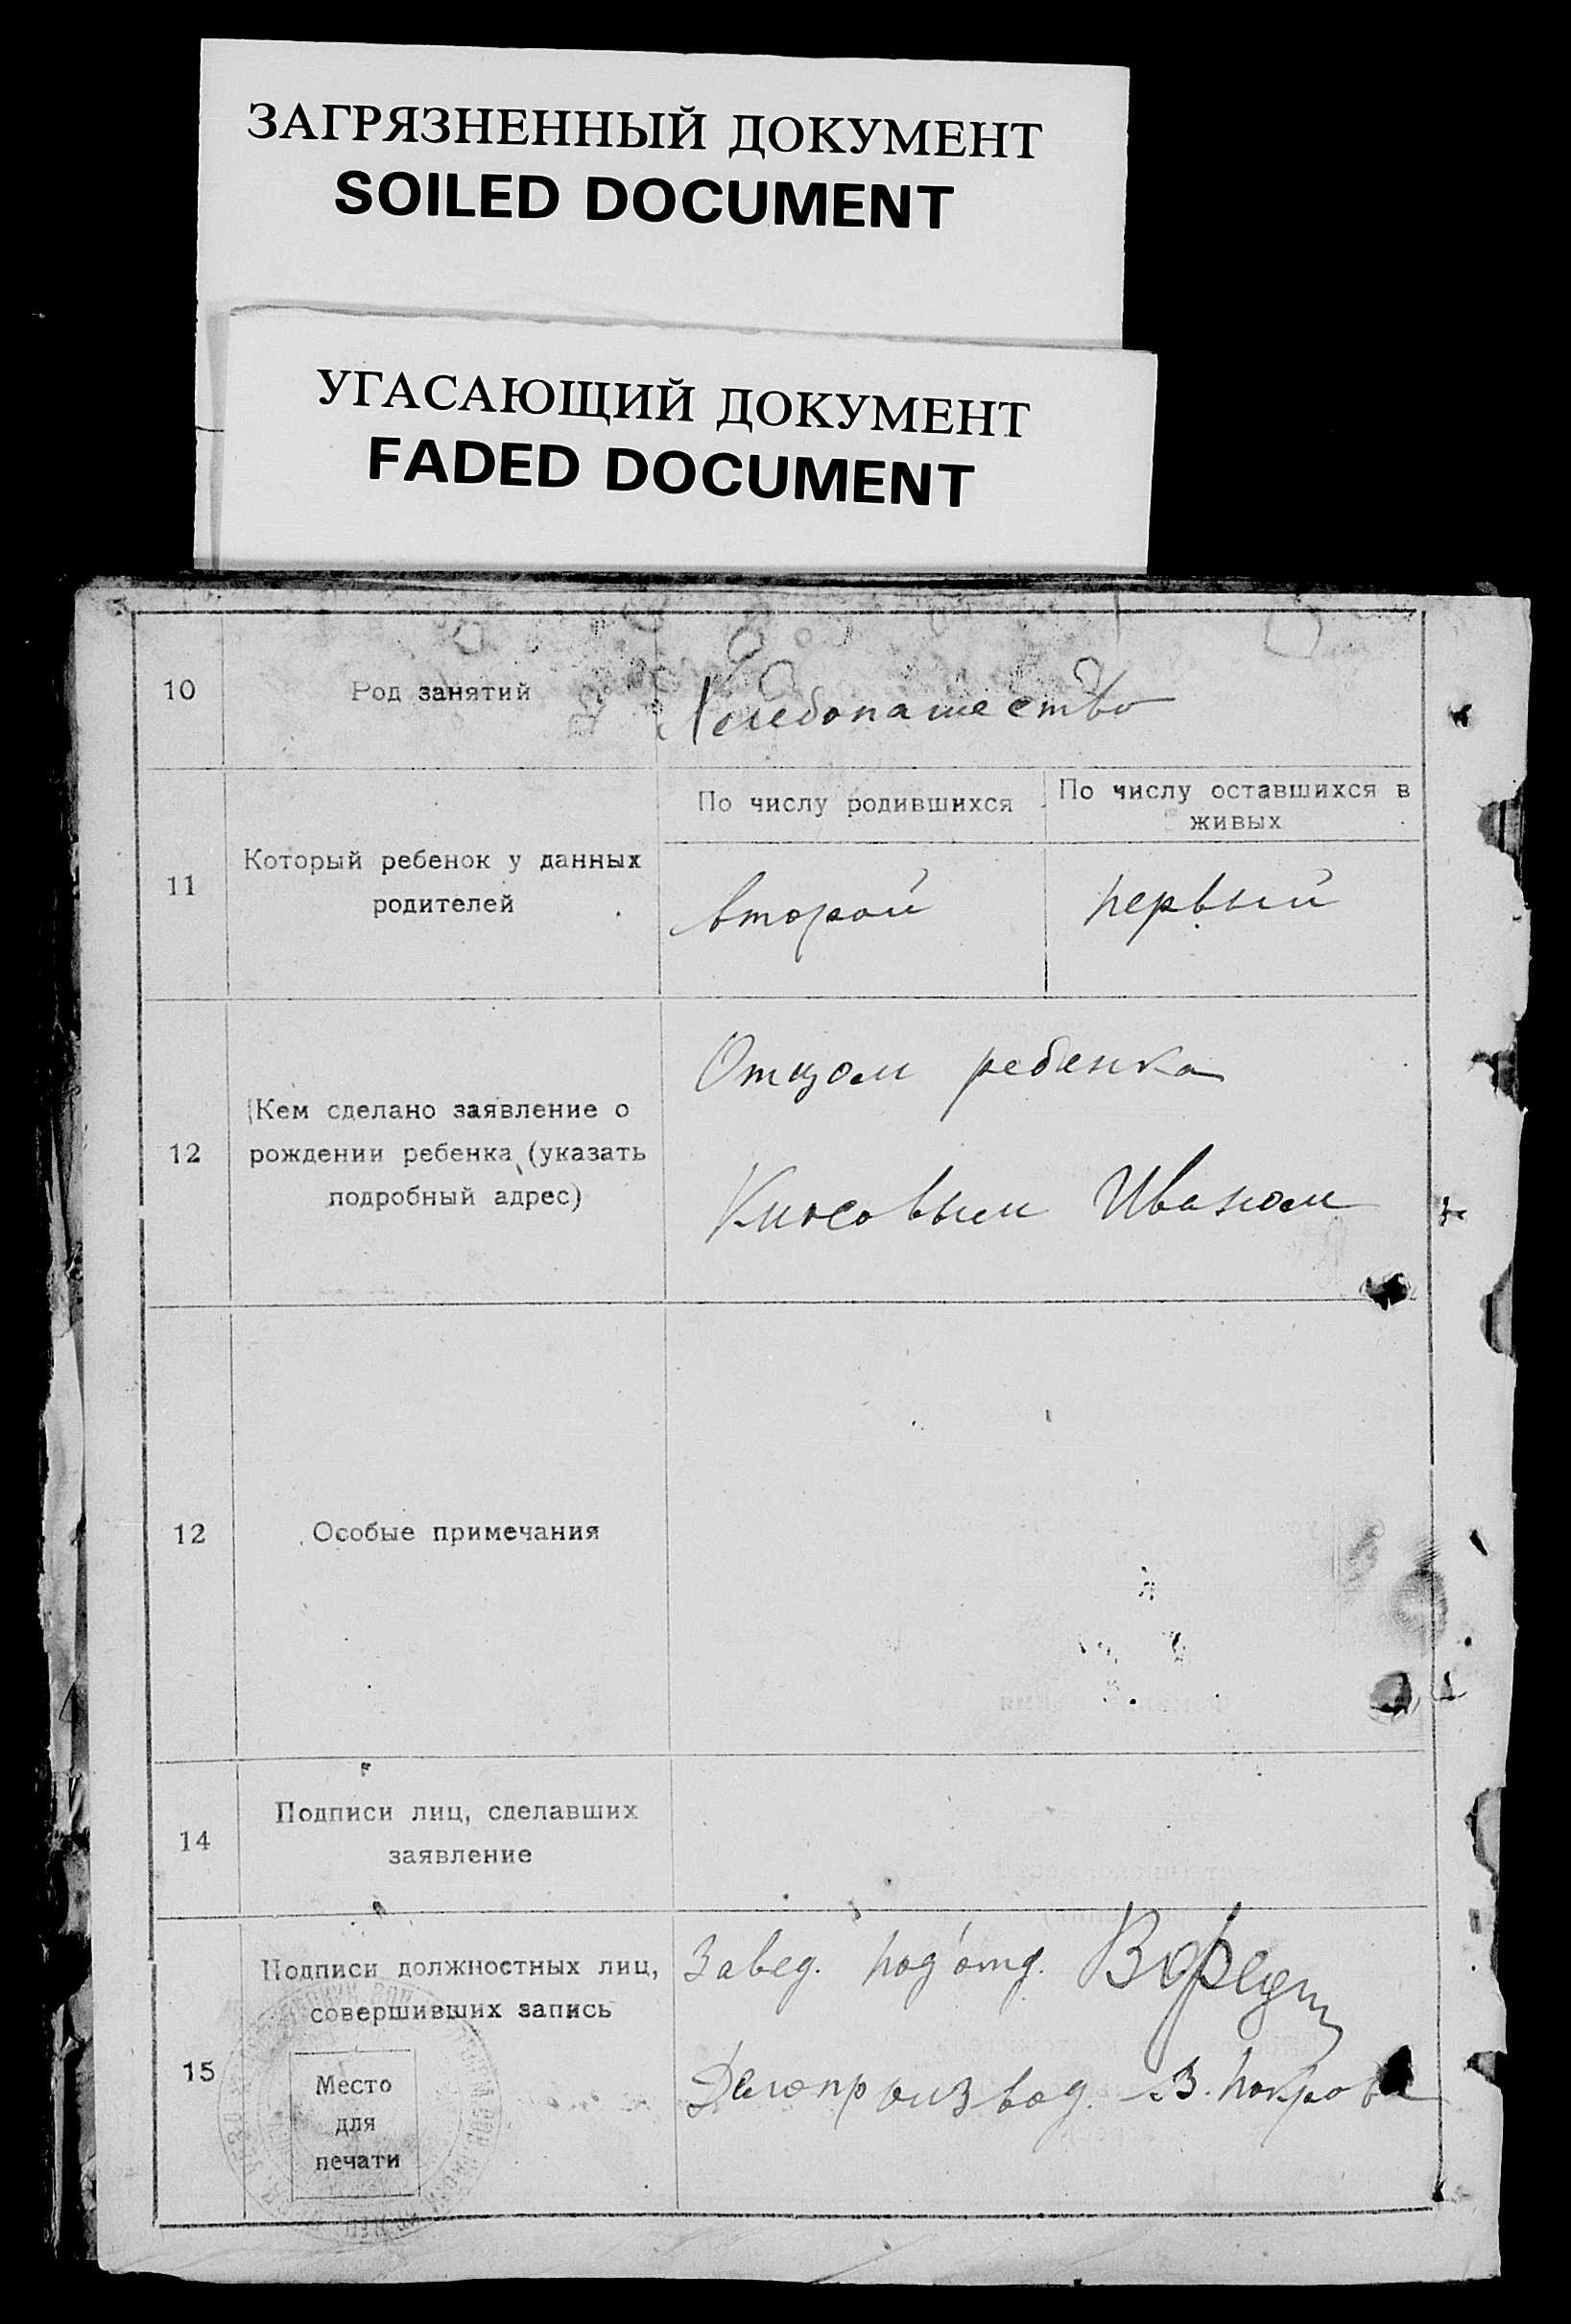 ЗАГРЯЗНЕННЫЙ ДОКУМЕНТ
SOILED DOCUMENT
УГАСАЮЩИЙ ДОКУМЕНТ
FADED DOCUMENT
10
Род занятий
Хлебопашество
11
Который ребенок у данных
родителей
По числу родившихся
По числу оставшихся в
живых
второй
первый
12
Кем сделано заявление о
рождении ребенка (указать
подробный адрес)
Отцом ребенка
Иваном
12
Особые примечания
14
Подписи лиц, сделавших
заявление
15
Подписи должностных лиц,
совершивших запись
Место
для
печати
Завед. под'отд.
Делопроизвод. В.